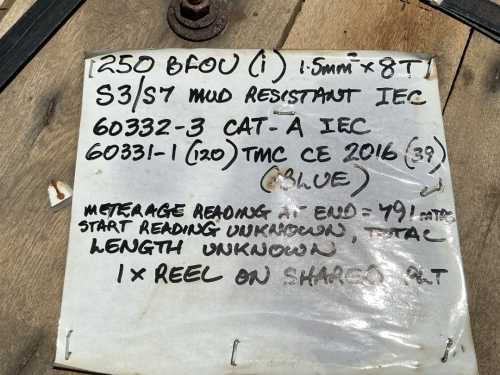 250 BFOU (i) 1.5mm² x 8T
S3/S7 MUD RESISTANT IEC
60332-3 CAT-A IEC
60331-1 (120) TMC CE 2016 (39)
(BLUE)
METERAGE READING AT END = 491 MTRS
START READING UNKNOWN, TOTAL
LENGTH UNKNOWN
1 x REEL ON SHARED PLT